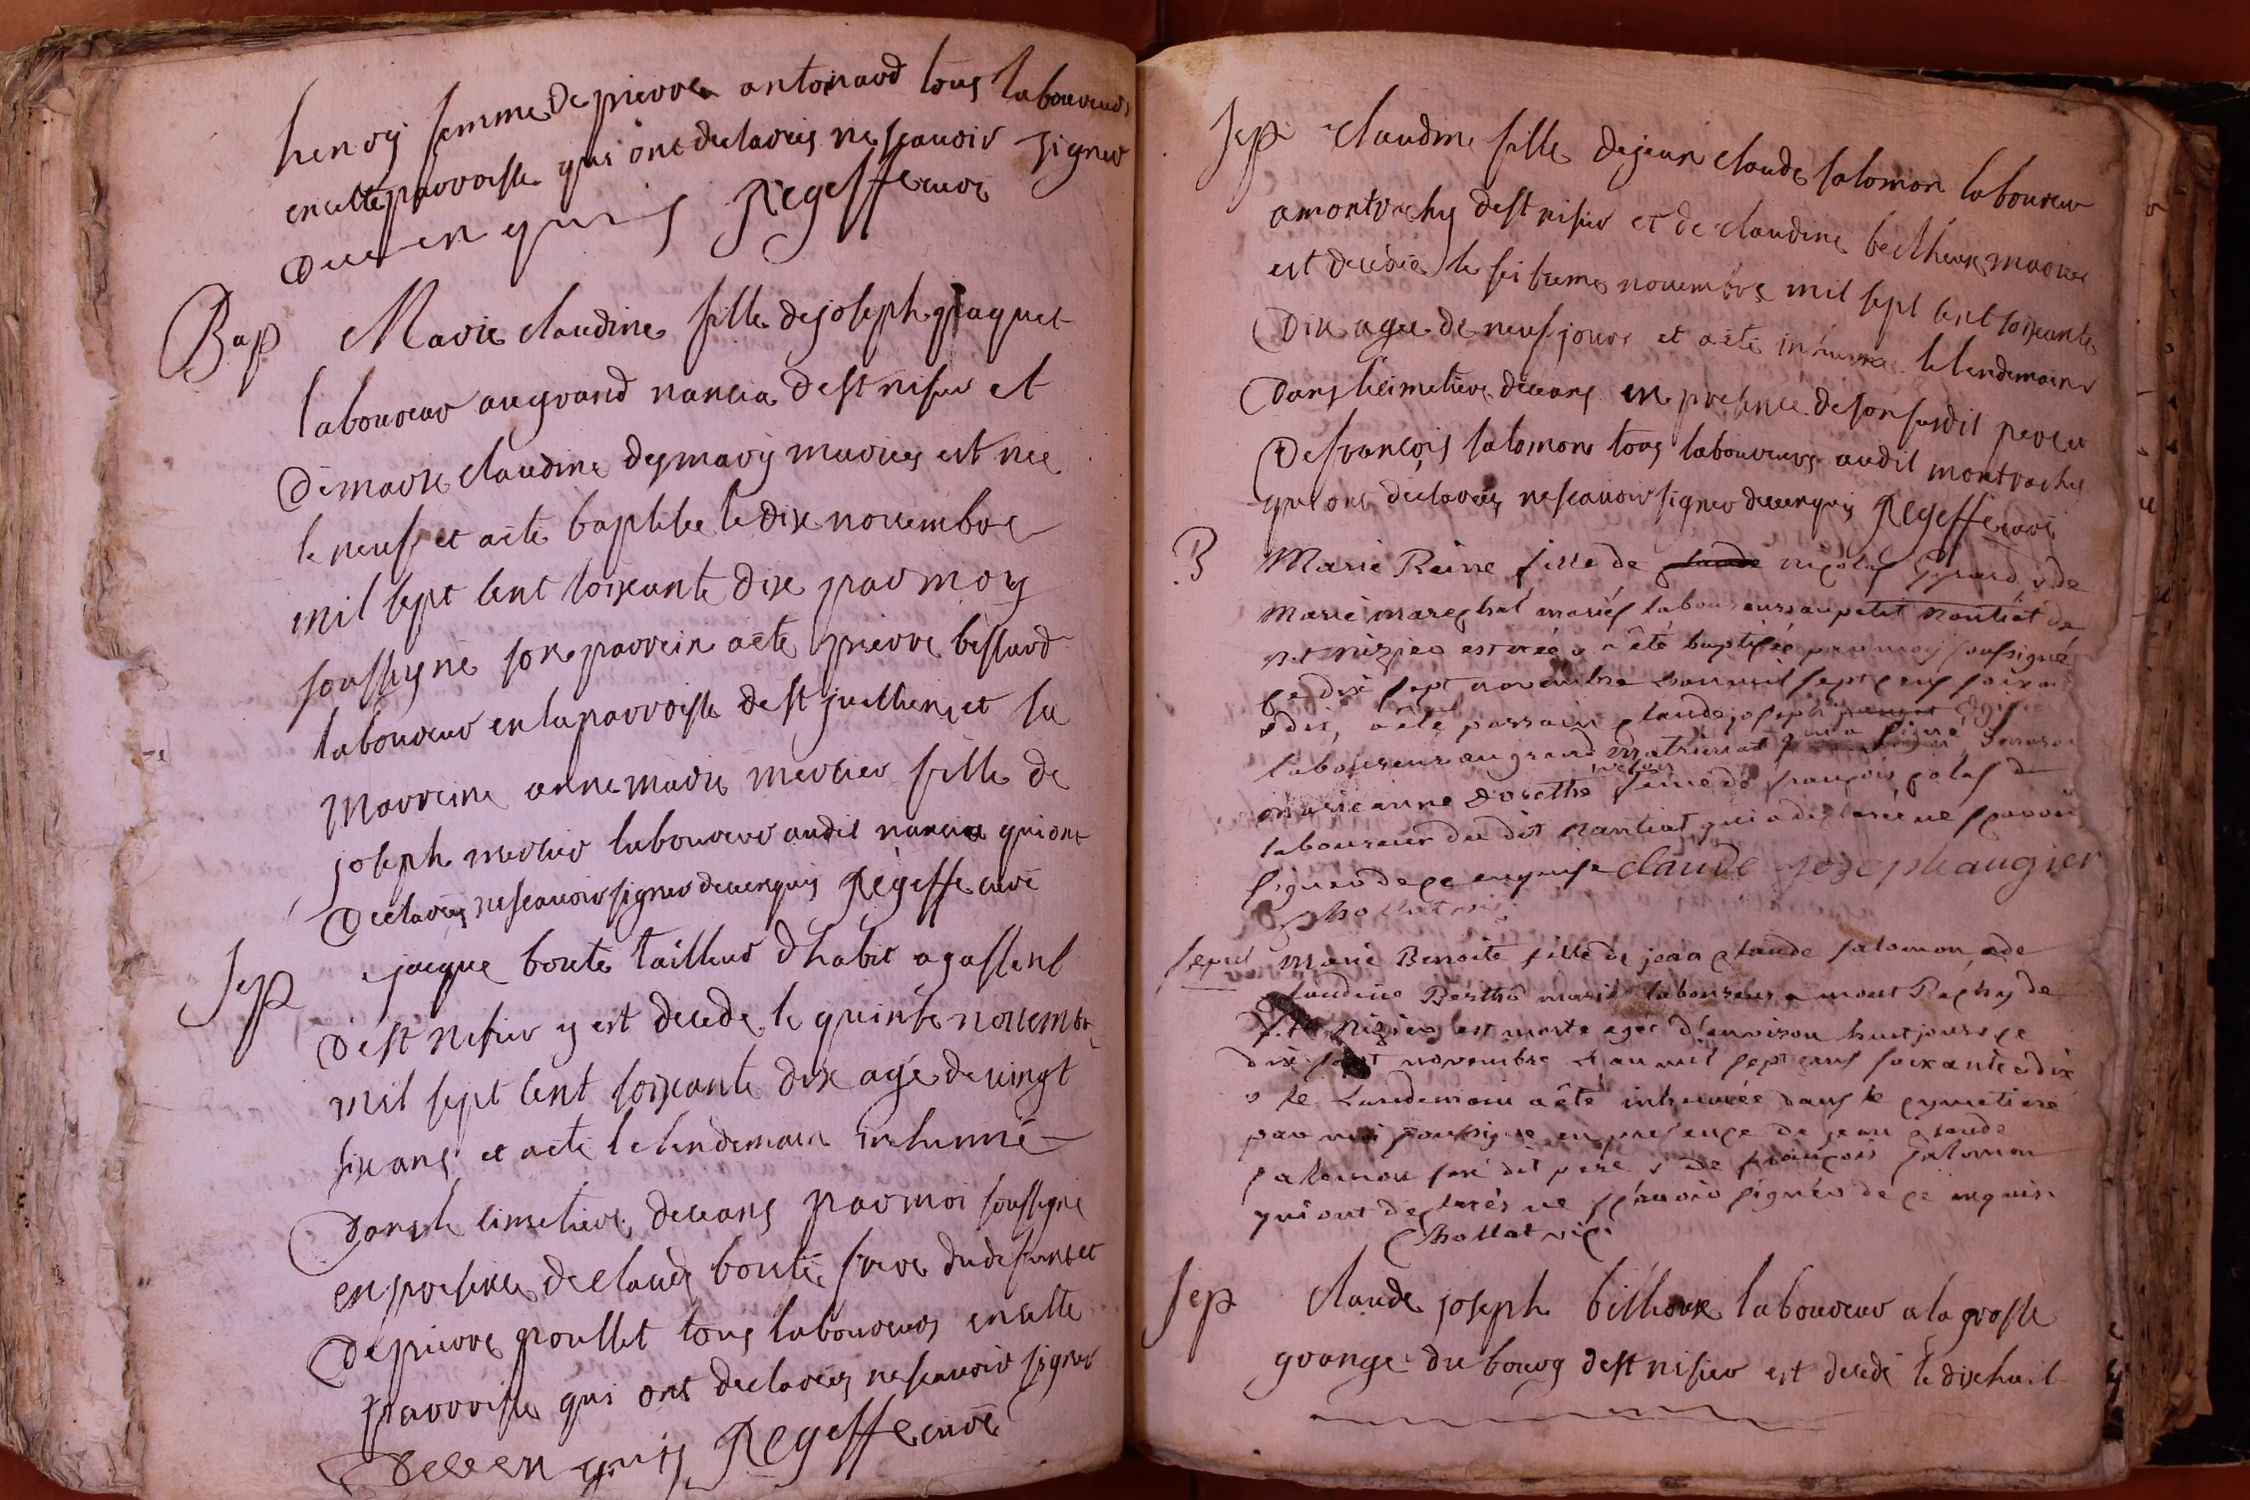 henry femme de pierre antonard tous laboureurs
en cette parroisse qui ont declarés ne scauoir signer
de ce enquis Regeffe curé
Bap Marie claudine fille de joseph
laboureur au grand nancia de st nisier et
de marie claudine desmaris mariés est née
le neuf et a été baptisée le dix nouembre
mil sept cent soixante dix par moy
soussigné son parrein a été pierre bessard
laboureur en la parroisse de st jullien et sa
marreine anne marie mercier fille de
joseph mercier laboureur audit nancia qui ont
declarés ne scauoir signer de ce enquis Regeffe curé
Sep jacque bonte tailleur d habit a gassent
de st nisier y est decede le quinse nouembre
mil sept cent soixante dix agé de vingt
six ans et a été le lendemain inhumé
dans le cimetiere de ceans par moi soussigné
en presence de claude bonte frere du defunt et
de pierre poullet tous laboureurs en cette
parroisse qui ont declarés ne scauoir signer
de ce enquis Regeffe curé
Sep claudine fille de jean claude salomon laboureur
a montrachy de st nisier et de claudine mariés
est decedée le seizieme nouembre mil sept cent soixante
dix agée de neuf jours et a été inhumée le lendemain
dans le cimetiere de ceans en presence de son susdit pere et
de françois salomon tous laboureurs audit montrachy
qui ont declarés ne scauoir signer de ce enquis Regeffe curé
B Marie Reine fille de claude nicolas & de
marie mareschal mariés laboureurs au petit nantiat de
st nizier est née & a été baptisée par moy soussigné
ce dix sept novembre l'an mil sept cens soixante
& dix, a été parrain claude joseph
laboureur au grand qui a signé,
marie anne femme de françois colas
laboureur du dit nantiat qui a declarée ne scavoir
signer de ce enquise claude josephaugier
Chollat vic.
sepul Marie Benoite fille de jean claude salomon, & de
claudine mariés laboureurs a mont Rachy de
st nizier est morte agée d'environ huit jours ce
dix sept novembre l'an mil sept cens soixante & dix
& le lendemain a été inhumée dans le cymetiere
par moi soussigné en presence de jean claude
salomon son dit pere & de françois salomon
qui ont declarés ne scavoir signer de ce enquis
Chollat vic.
Sep claude joseph laboureur a la grosse
grange du bourg de st nisier est decedé le dix huit